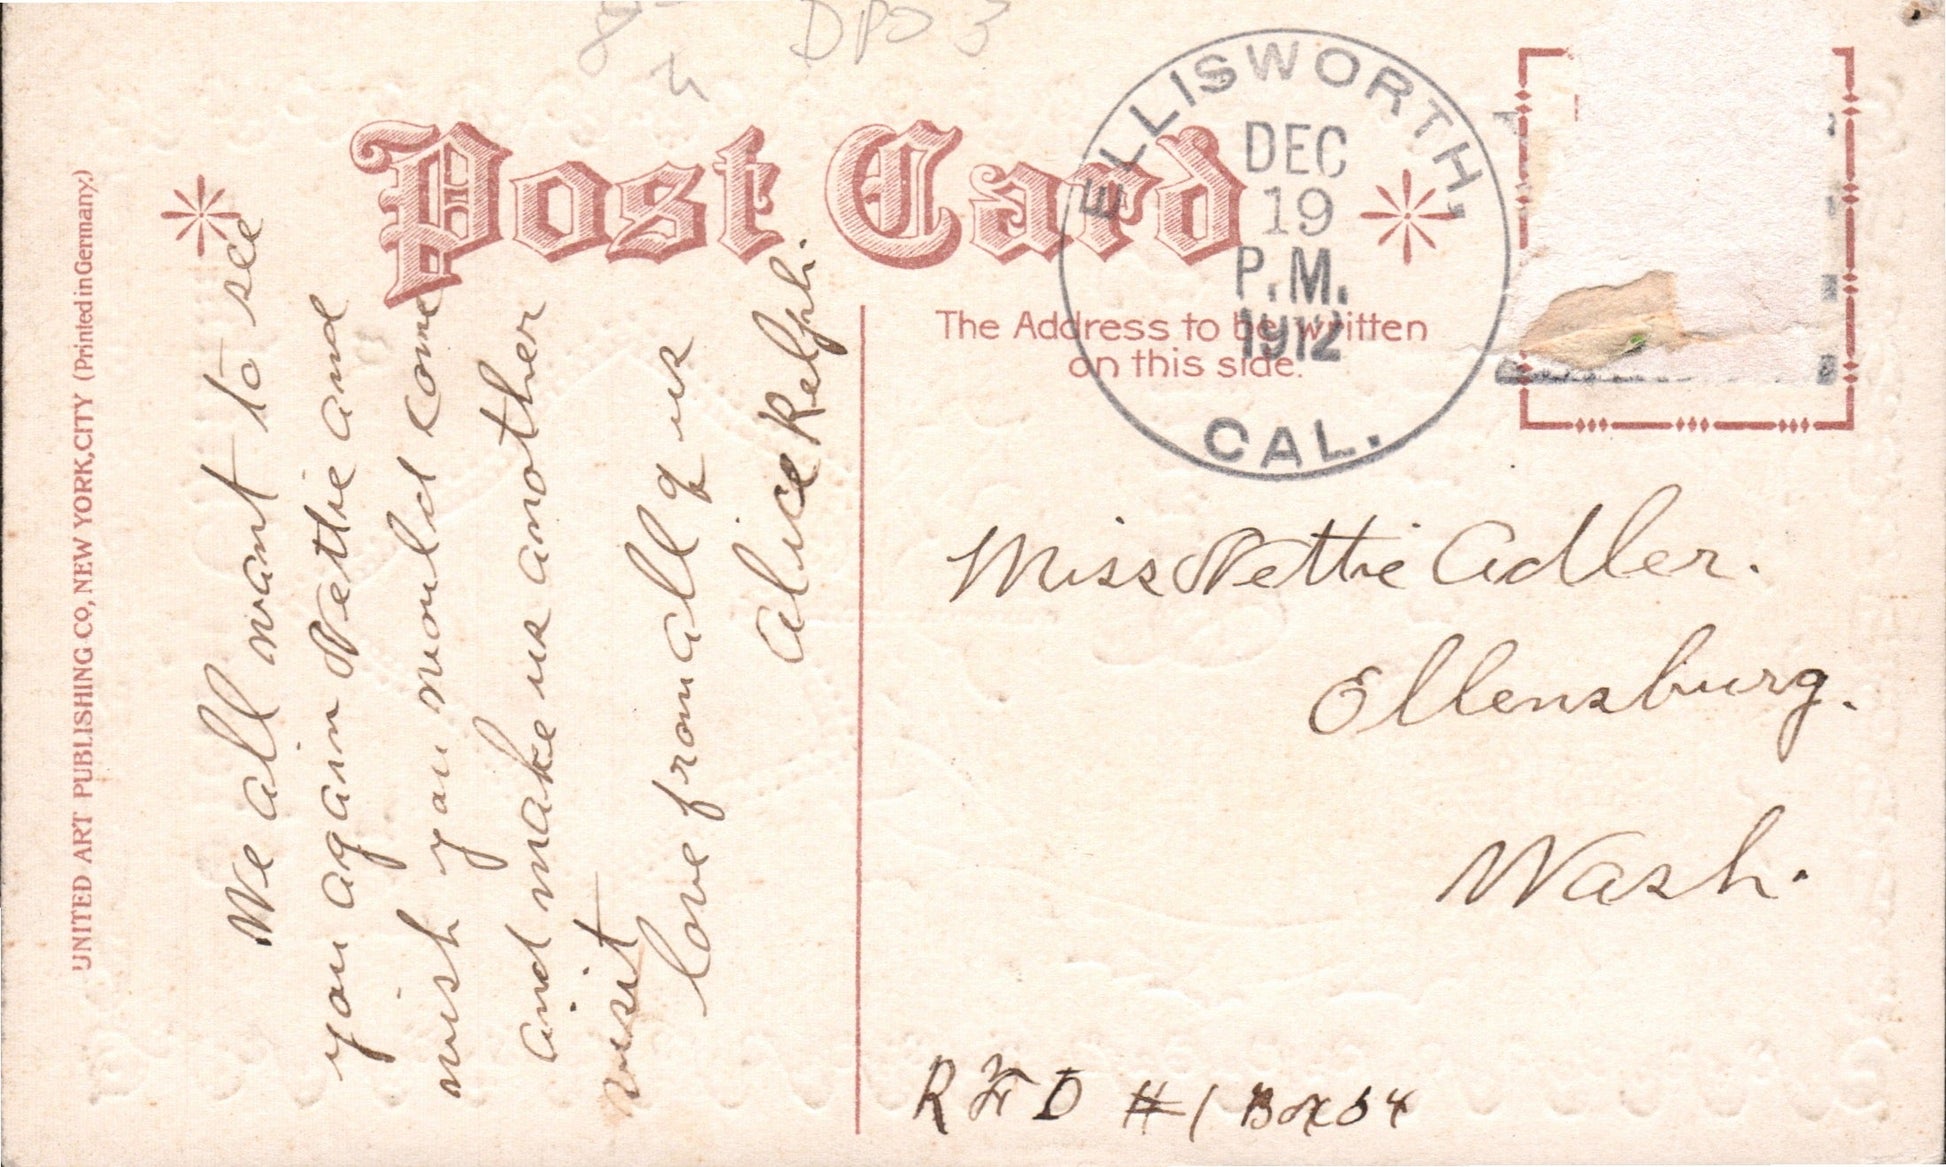 DPO 3
Post Card
UNITED ART PUBLISHING CO., NEW YORK, CITY (Printed in Germany.)
The Address to be written
on this side.
ELLISWORTH,
DEC
19
P.M.
1912
CAL.
We all want to see
you again Nettie and
wish you would come
and make us another
visit
love from all of us
Alice Relph.
Miss Nettie Adler.
Ellensburg.
Wash.
RFD #1 Box 54